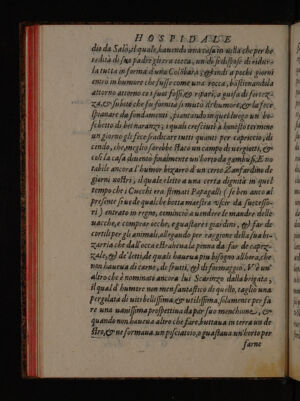 HOSPIDALE
dio da Salò, il quale, hauendo una casa in uilla che per he
redità di suo padre gli era tocca, un dì se dispose di ridur
la tutta in forma d'una Colõbara; & fandi a pochi giorni
entrò in humore che fusse come una rocca, bastionandola
attorno attorno coi suoi fossi, & ripari, a guisa di fortez-
za, & subito che fu fornita si mutò d'humore, & la fece
spianare da fondamenti, piantando in quel luogo un bo-
schetto di bei naranzi; i quali cresciuti à honesto termine
un giorno gli fece sradicare tutti quanti per capriccio, di
cendo, che, meglio sarebbe stato un campo de uergiotti, &
così la casa diuentò finalmente un'horto da gambusi. E no
tabile ancora l'humor bizarro d'un certo Zanfardino de
giorni nostri, il quale eletto a una certa dignità in quel
tempo che i Cucchi eran stimati Papagalli (se ben anco al
presente si uede qualche botta maestra uscir da successo-
ri) entrato in regno, cominciò a uendere le mandre delle
uacche, e comprar ocche, e guastare i giardini, & far de
cortili per gli animali, allegando per ragione della sua bi-
zarria che dall'occa estrahea la penna da far de caprez-
zale, & de' letti, de quali haueua più bisogno all'hora, che
non haueua di carne, di frutti, & di formazzo. V'è un'
altro che è nominati ancora lui Scarinzo dalla brigata,
il qual d'humore non men fantastico di quello, tagliò una
pergolata di uiti bellissima, & utilissima, solamente per fa
re una uanissima prospettiua da par suo menchione, &
quando non haueua altro che fare, buttaua in terra un de
stro, & ne formaua un pisciatoio, o guastaua un'horto per
farne